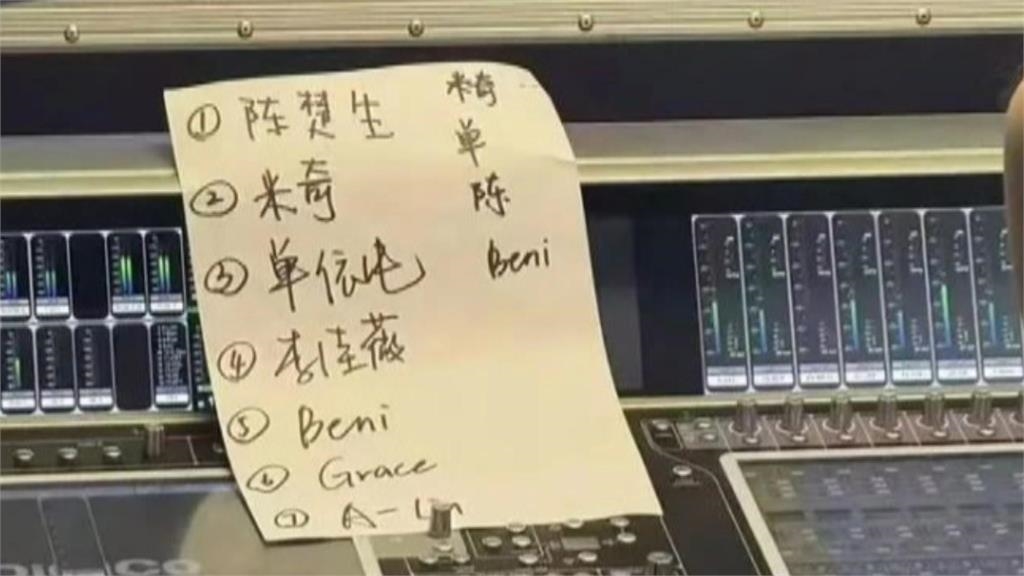 ① 陈赞生
② 米奇
③ 单依纯
④ 李佳薇
⑤ Beni
⑥ Grace
⑦ A-Lin
米奇
单
陈
Beni